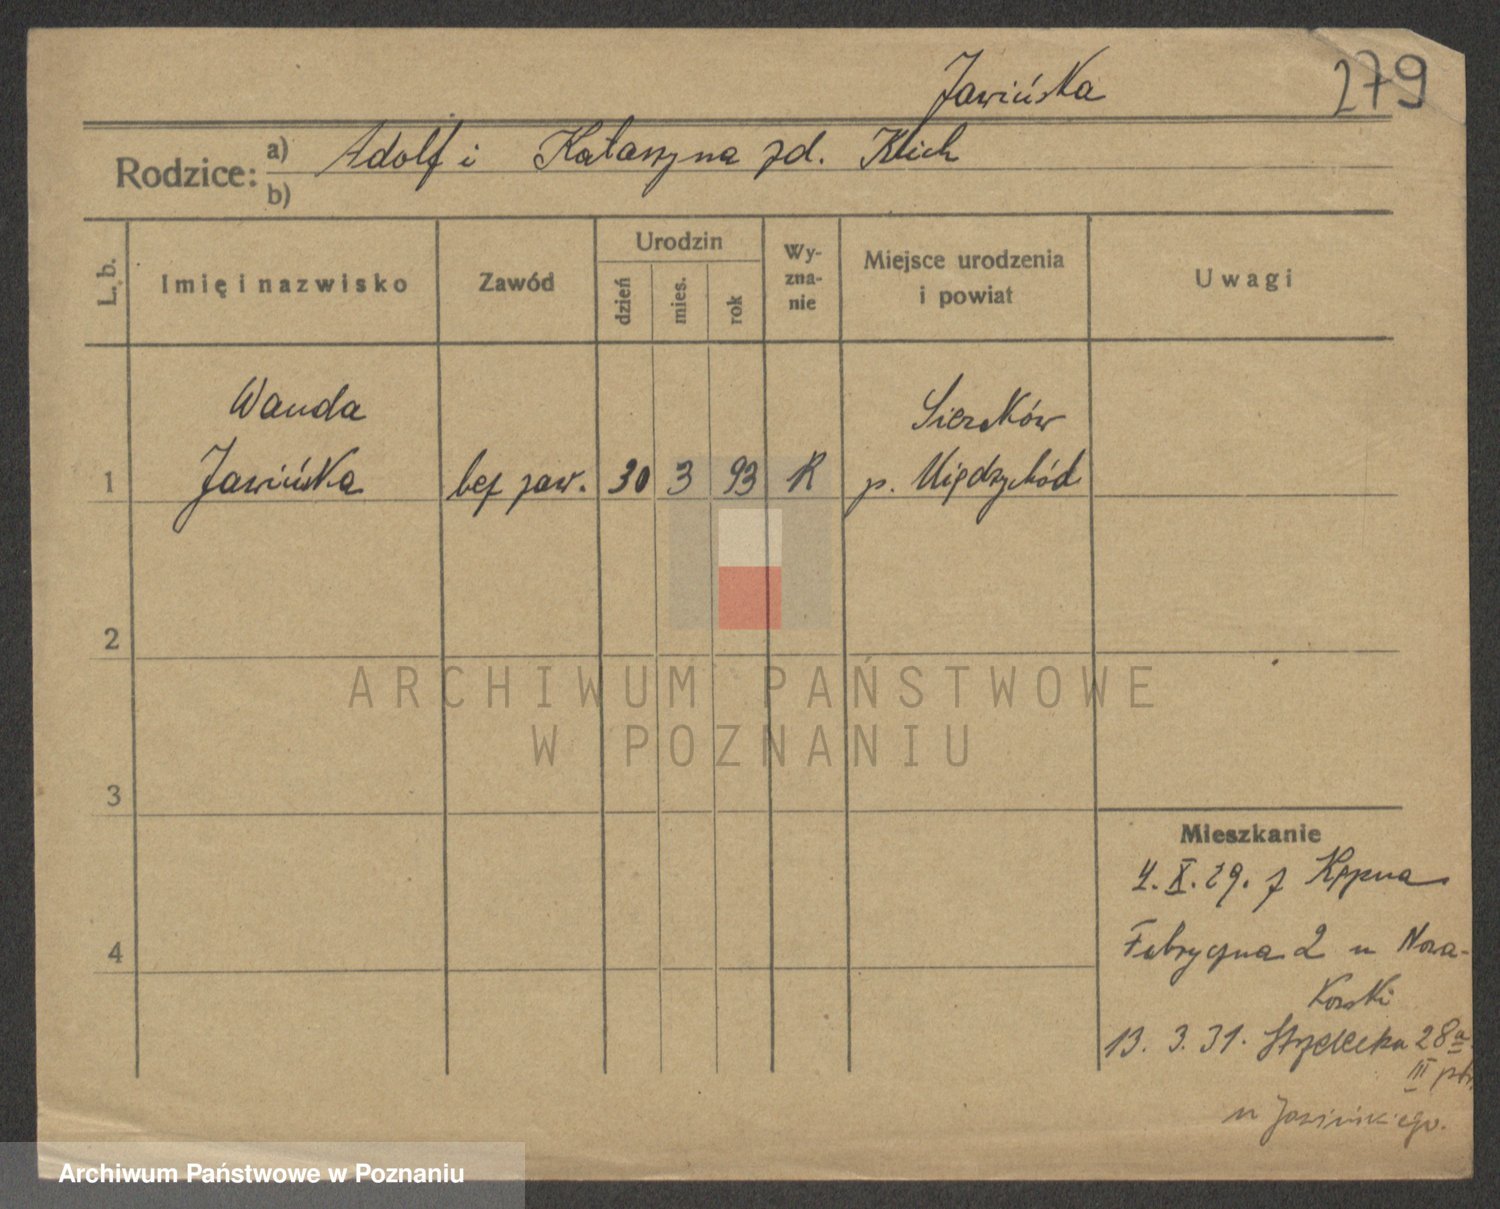 Jawińska
279
Rodzice: a) Adolf i Katarzyna zd. Klich
b)
L. b.
Imię i nazwisko
Zawód
Urodzin
dzień
mies.
rok
Wy-
zna-
nie
Miejsce urodzenia
i powiat
Uwagi
Wanda
Sieraków
1
Jawińska
bez zaw.
30
3
93
R
p. Międzychód
2
ARCHIWUM PAŃSTWOWE
W POZNANIU
3
Mieszkanie
4. X. 29. z Kępna
4
Fabryczna 2 u Nowa-
kowski
13. 3. 31. Strzelecka 28a
III ptr.
u Jasińskiego.
Archiwum Państwowe w Poznaniu